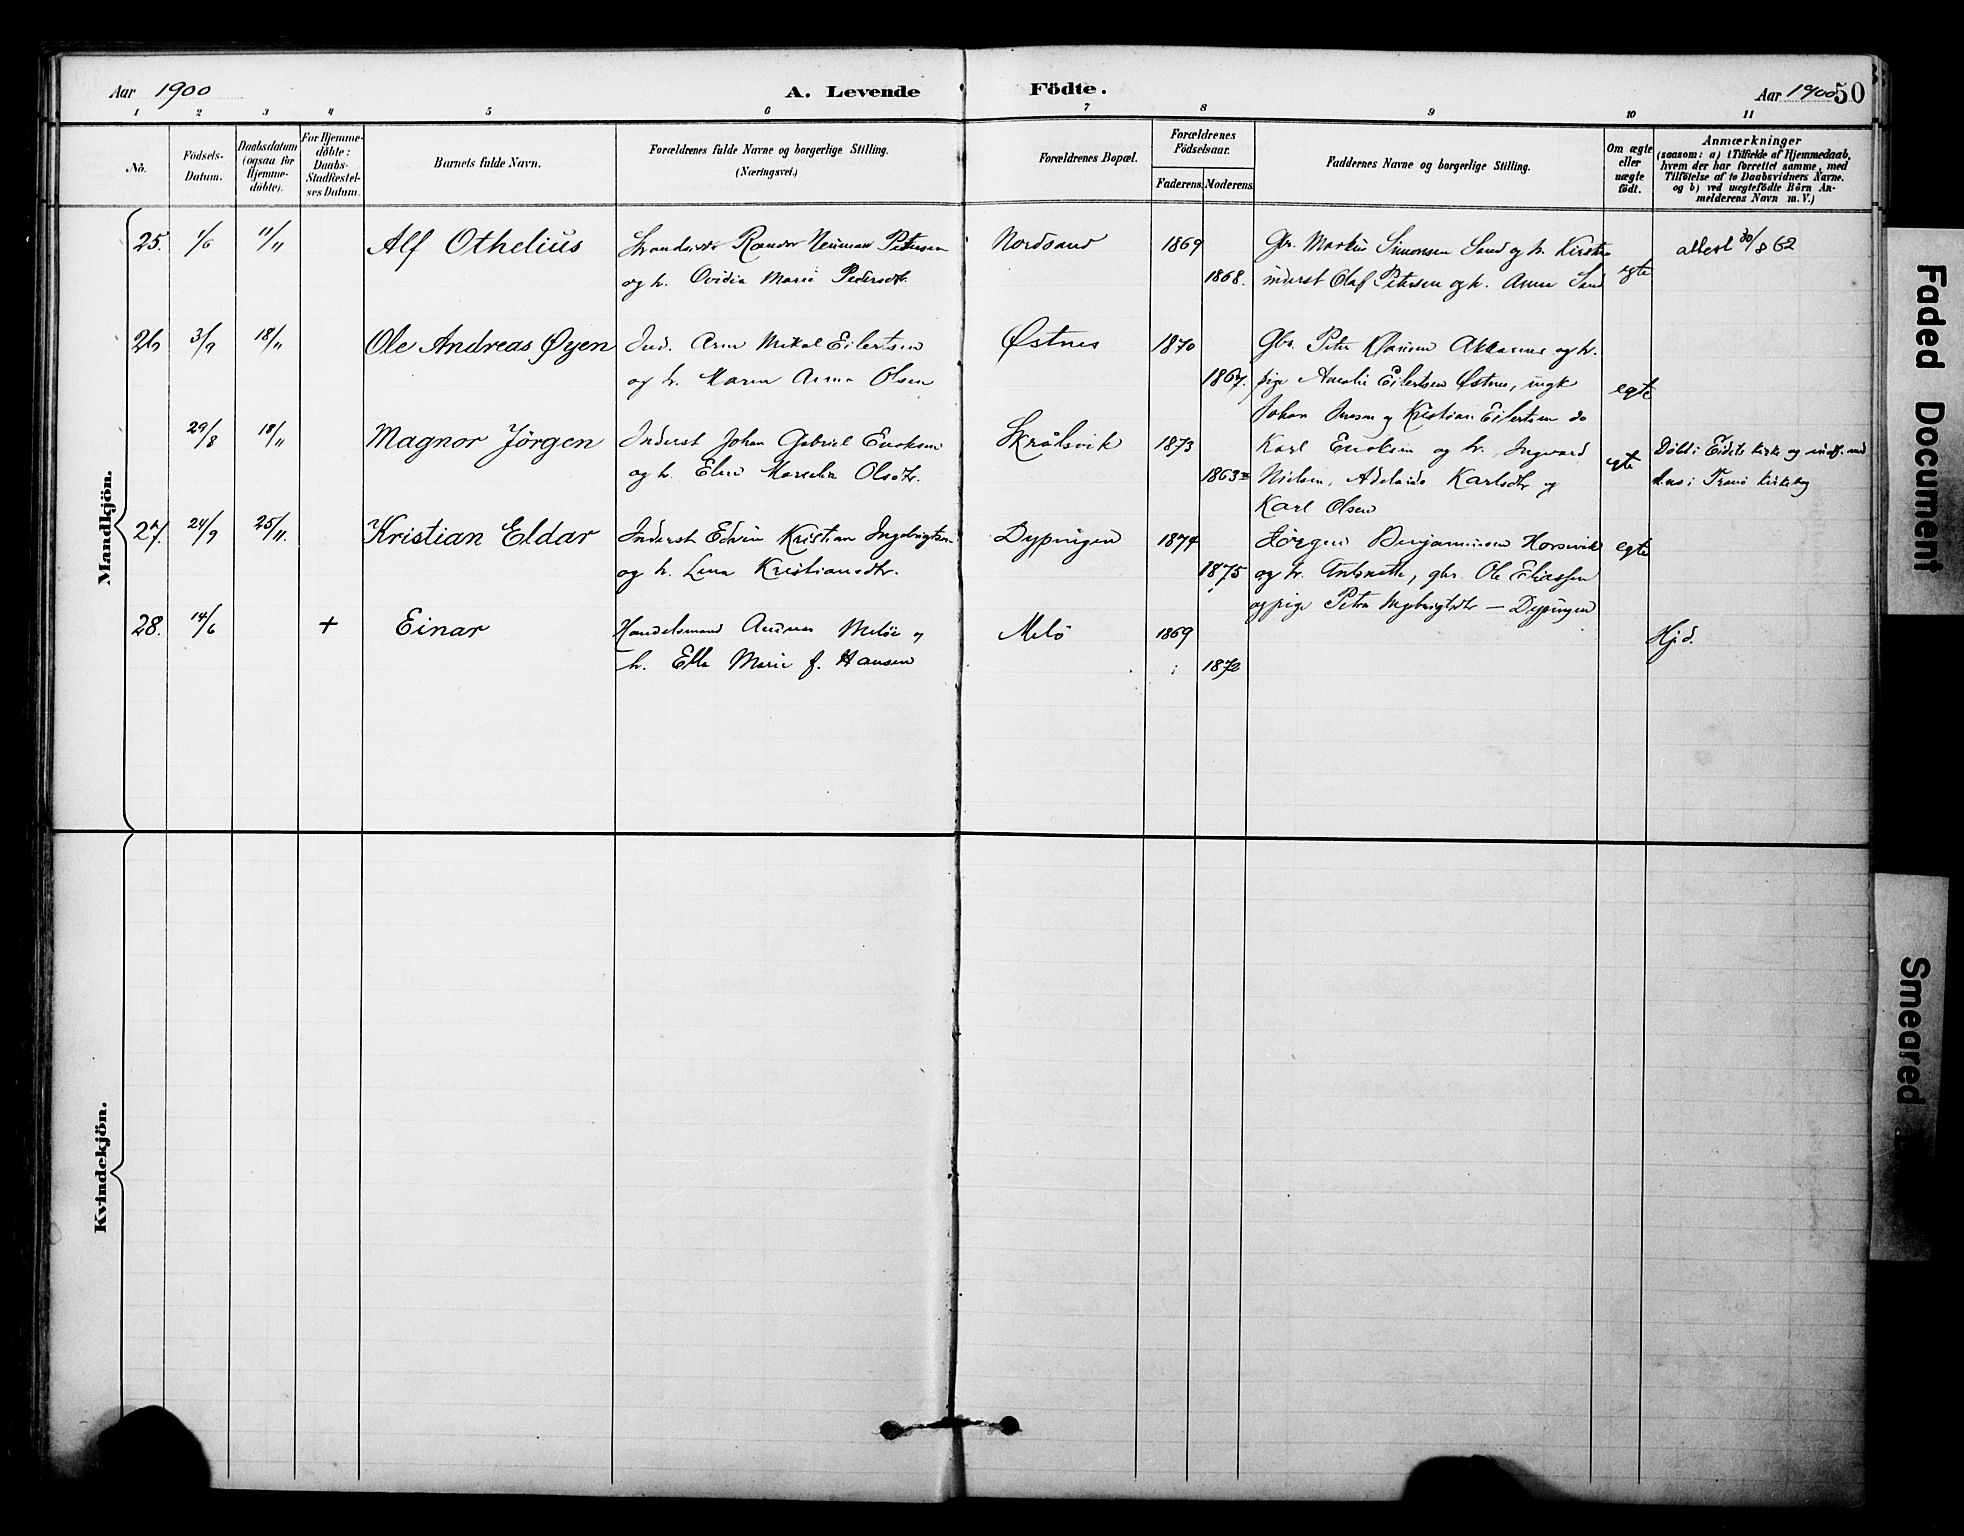 Aar 1900
A. Levende Födte.
Aar 1900 50
1 2 3 4 5 6 7 8 9 10 11
No.
Födsels-
Datum.
Daabsdatum
(ogsaa for
Hjemme-
döbte).
For Hjemme-
döbte:
Daabs-
Stadfæstel-
ses Datum.
Barnets fulde Navn.
Forældrenes fulde Navne og borgerlige Stilling.
(Næringsvei.)
Forældrenes Bopæl.
Forældrenes
Födselsaar.
Faderens. Moderens.
Faddernes Navne og borgerlige Stilling.
Om ægte
eller
uægte
födt.
Anmærkninger
(saasom: a) i Tilfælde af Hjemmedaab,
hvem der har forrettet samme, med
Tilföielse af to Daabsvidners Navne.
og b) ved uægtefödte Börn An-
melderens Navn m. V.)
Mandkjön.
25. 1/6 11/11 Alf Othelius Petersen Nordsand 1869 Gbr. Markus Simonsen Sand og h. attest 30/8 62
og h. Ovidia Marie Pedersdtr. 1868. inderst Olaf Petersen og h. Anna Sand egte
26 3/9 18/11 Ole Andreas Øyen Ind. Arne Mikal Eilertsen Østnes 1870 Gbr. Peter og h.
og h. Maren Anna Olsen 1867. pige Amalie Eilertsen Østnes, ungk egte
Johan og Kristian Eilertsen do
29/8 18/11 Magnor Jörgen Inderst Johan Gabriel Skrålsvik 1873 Karl og h. Ingvard Döbt i Eidets kirke og
og h. Elen Olsdtr. 1863 Nielsen, Adelaide Karlsdtr og egte
Karl Olsen
27. 24/9 25/11. Kristian Eldar Inderst Edvin Kristian Ingebrigtsen Dypingen 1874 Jörgen Benjaminsen Horsvik egte
og h. Lina Kristiansdtr. 1875 og h. Antonette, gbr. Ole Eliassen
og pige Petra Ingebrigtsdtr — Dypingen
28. 14/6 + Einar Handelsmand Andreas Melöe og Melö 1869 Hjd.
h. Ella Marie f. Hansen 1872
Kvindekjön.
Faded Document
Smeared